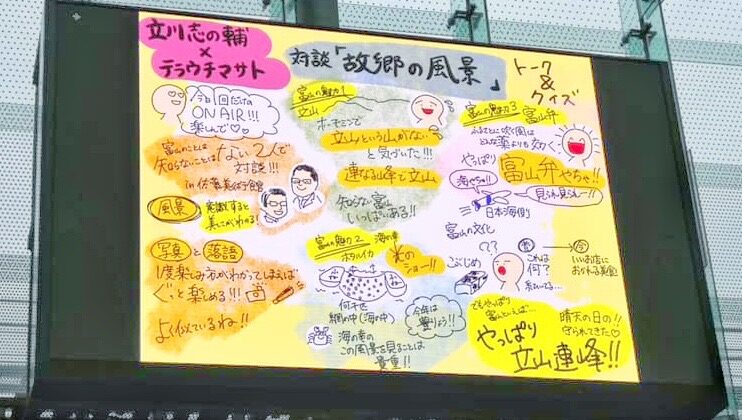 立川志の輔
×
テラウチマサト
対談「故郷の風景」
トーク
&
クイズ
今日1回だけの
ON AIR!!!
楽しんで♡♡
富山のことは
知らないことはない2人で
対談!!!
in 佐藤美術館
風景
意識すると
美しさがわかる!
写真と落語
1度楽しみ方がわかってしまえば
ぐっと楽しめる!!!
よく似ているね!!
富山の魅力1
立山
ネーミングで
立山という山がない
と気づいた!!!
連なる峰で立山
知らない富山
いっぱいある!!
富山の魅力2
ホタルイカ
海の幸
光の
ショー!!
何千匹
網の中(海の中)
今年は
豊りょう!!
海の幸の
この風景を見ることは
貴重!!
富山の魅力3
富山弁
ふるさとに吹く風は
どんな薬よりも効く
やっぱり
富山弁やちゃ!!
海やちゃ!!
見られ見られー!!
日本海側
富山の文化
??
こぶじめ
昔
今
これは
何?
いいお店に
おかれる美食
でもやっぱり
富山といえば…
やっぱり
立山連峰!!
晴天の日の!!
守られてきた♡